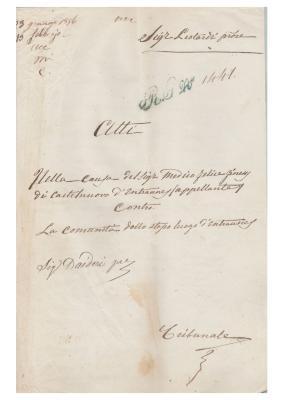 gennajo 1856
febbrjo
Sigr Liotardi pitre
R. D. No 1441.
Atti
Nella causa del Sigr Medico felice
di Castelnuovo d'Entraunes appellante
Contro
La comunità dello stesso luogo d'Entraunes
Sigr Daideri pre
Tribunale